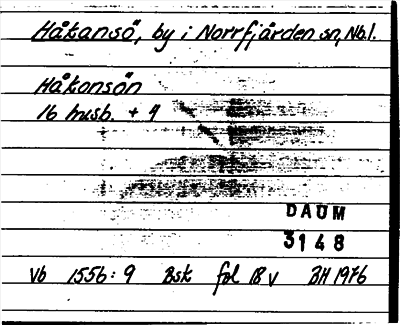 Håkansö, by i Norrfjärden sn, Nb.l.
Håkonsön
16 husb. + 9
DAUM
3148
Vb 1556: 9 Bsk fol 18 v BH 1976